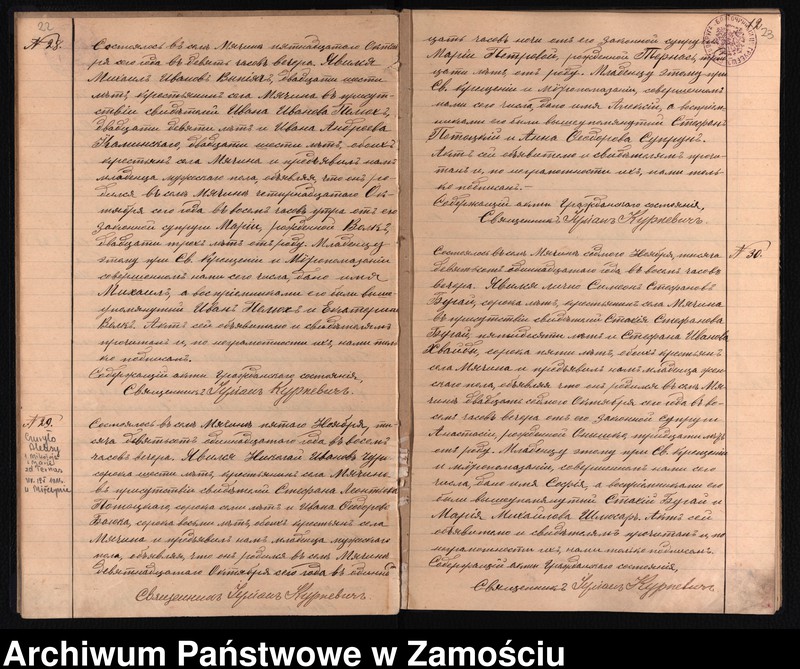 22
№ 28.
Состоялось въ селѣ Мячинѣ пятнадцатаго Октя-
ря сего года въ девять часовъ вечера. Явился
Михаилъ Ивановъ двадцати шести
лѣтъ, крестьянинъ села Мячина въ присут-
ствіи свидѣтелей Ивана Иванова
двадцати девяти лѣтъ и Ивана Андреева
Калинскаго, двадцати шести лѣтъ, обоихъ
крестьянъ села Мячина и предъявилъ намъ
младенца мужескаго пола, объявляя, что онъ ро-
дился въ селѣ Мячинѣ четырнадцатаго Ок-
тября сего года въ восемь часовъ утра отъ его
законной супруги Маріи, рожденной Волкъ,
двадцати трехъ лѣтъ отъ роду. Младенцу
этому при Св. крещеніи и Мѵропомазаніи
совершенномъ нами сего числа, дано имя
Михаилъ, а воспріемниками его были выше
упомянутый Иванъ и Екатерина
Волкъ. Актъ сей объявителю и свидѣтелямъ
прочитанъ и, по неграмотности ихъ, нами толь
ко подписанъ.
Содержащій акты гражданскаго состоянія,
Священникъ Іуліанъ Куркевичъ.
№ 29.
Состоялось въ селѣ Мячинѣ пятаго Ноября, ты-
сяча девятьсотъ одиннадцатаго года въ восемь
часовъ вечера. Явился Николай Ивановъ
сорока шести лѣтъ, крестьянинъ села Мячина
въ присутствіи свидѣтелей Стефана Леонтіева
Потоцкаго сорока семи лѣтъ и Ивана Ѳеодорова
сорока восьми лѣтъ, обоихъ крестьянъ села
Мячина и предъявилъ намъ младенца мужескаго
пола, объявляя, что онъ родился въ селѣ Мячинѣ
девятнадцатаго Октября сего года въ одинна
Священникъ Іуліанъ Куркевичъ.
23
цать часовъ ночи отъ его законной супруги
Маріи Петровой, рожденной
цати лѣтъ отъ роду. Младенцу этому при
Св. крещеніи и мѵропомазаніи, совершенномъ
нами сего числа, дано имя Алексій, а воспріем-
никами его были вышеупомянутый Стефанъ
Потоцкій и Анна Ѳеодорова Супрунъ.
Актъ сей объявителю и свидѣтелямъ прочи-
танъ и, по неграмотности ихъ, нами толь-
ко подписанъ.-
Содержащій акты гражданскаго состоянія,
Священникъ Іуліанъ Куркевичъ.
№ 30.
Состоялось въ селѣ Мячинѣ седьмого Ноября, тысяча
девятьсотъ одиннадцатаго года въ восемь часовъ
вечера. Явился лично Симеонъ Стефановъ
Бугай, сорока лѣтъ, крестьянинъ села Мячина
въ присутствіи свидѣтелей Стасія Стефанова
Бугай, пятидесяти лѣтъ и Стефана Иванова
Хвайбы, сорока пяти лѣтъ, обоихъ крестьянъ
села Мячина и предъявилъ намъ младенца жен-
скаго пола, объявляя что онъ родился въ селѣ Мя-
чинѣ двадцать седьмого Октября сего года въ во-
семь часовъ вечера отъ его законной супруги
Анастасіи, рожденной тридцати лѣтъ
отъ роду. Младенцу этому при Св. крещеніи
и мѵропомазаніи, совершенномъ нами сего
числа, дано имя Софія, а воспріемниками его
были вышеупомянутый Стасій Бугай и
Марія Михайлова Шлюсаръ. Актъ сей
объявителю и свидѣтелямъ прочитанъ и, по
неграмотности ихъ, нами только подписанъ.
Содержащій акты гражданскаго состоянія,
Священникъ Іуліанъ Куркевичъ.
Archiwum Państwowe w Zamościu